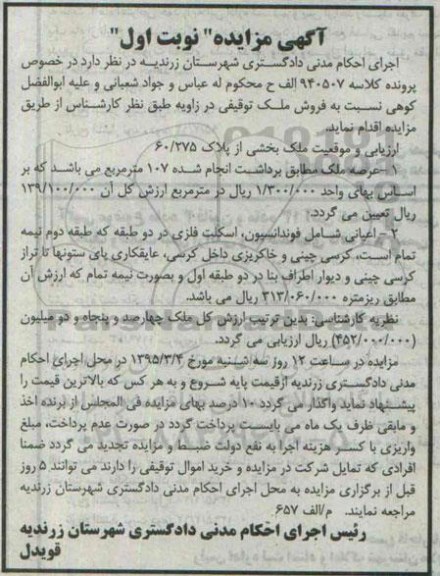 آگهی مزایده" نوبت اول"
اجرای احکام مدنی دادگستری شهرستان زرندیه در نظر دارد در خصوص
پرونده کلاسه ۹۴۰۵۰۷ الف ح محکوم له عباس و جواد شعبانی و علیه ابوالفضل
کوهی نسبت به فروش ملک توقیفی در زاویه طبق نظر کارشناس از طریق
مزایده اقدام نماید.
ارزیابی و موقعیت ملک بخشی از پلاک ۶۰/۲۷۵
۱-عرصه ملک مطابق برداشت انجام شده ۱۰۷ مترمربع می باشد که بر
اساس بهای واحد ۱/۳۰۰/۰۰۰ ریال در مترمربع ارزش کل آن ۱۳۹/۱۰۰/۰۰۰
ریال تعیین می گردد.
۲-اعیانی شامل فونداسیون، اسکلت فلزی در دو طبقه که طبقه دوم نیمه
تمام است، کرسی چینی و خاکریزی داخل کرسی، عایقکاری پای ستونها تا تراز
کرسی چینی و دیوار اطراف بنا در دو طبقه اول و بصورت نیمه تمام که ارزش آن
مطابق ریزمتره ۳۱۳/۰۶۰/۰۰۰ ریال می باشد.
نظریه کارشناسی: بدین ترتیب ارزش کل ملک چهارصد و پنجاه و دو میلیون
(۴۵۲/۰۰۰/۰۰۰) ریال ارزیابی می گردد.
مزایده در ساعت ۱۲ روز سه شنبه مورخ ۱۳۹۵/۳/۴ در محل اجرای احکام
مدنی دادگستری زرندیه ازقیمت پایه شروع و به هر کس که بالاترین قیمت را
پیشنهاد نماید واگذار می گردد ۱۰ درصد بهای مزایده فی المجلس از برنده اخذ
و مابقی ظرف یک ماه می بایست پرداخت گردد در صورت عدم پرداخت، مبلغ
واریزی با کسر هزینه اجرا به نفع دولت ضبط و مزایده تجدید می گردد ضمنا
افرادی که تمایل شرکت در مزایده و خرید اموال توقیفی را دارند می توانند ۵ روز
قبل از برگزاری مزایده به محل اجرای احکام مدنی دادگستری شهرستان زرندیه
مراجعه نمایند. م/الف ۶۵۷
رئیس اجرای احکام مدنی دادگستری شهرستان زرندیه
قویدل